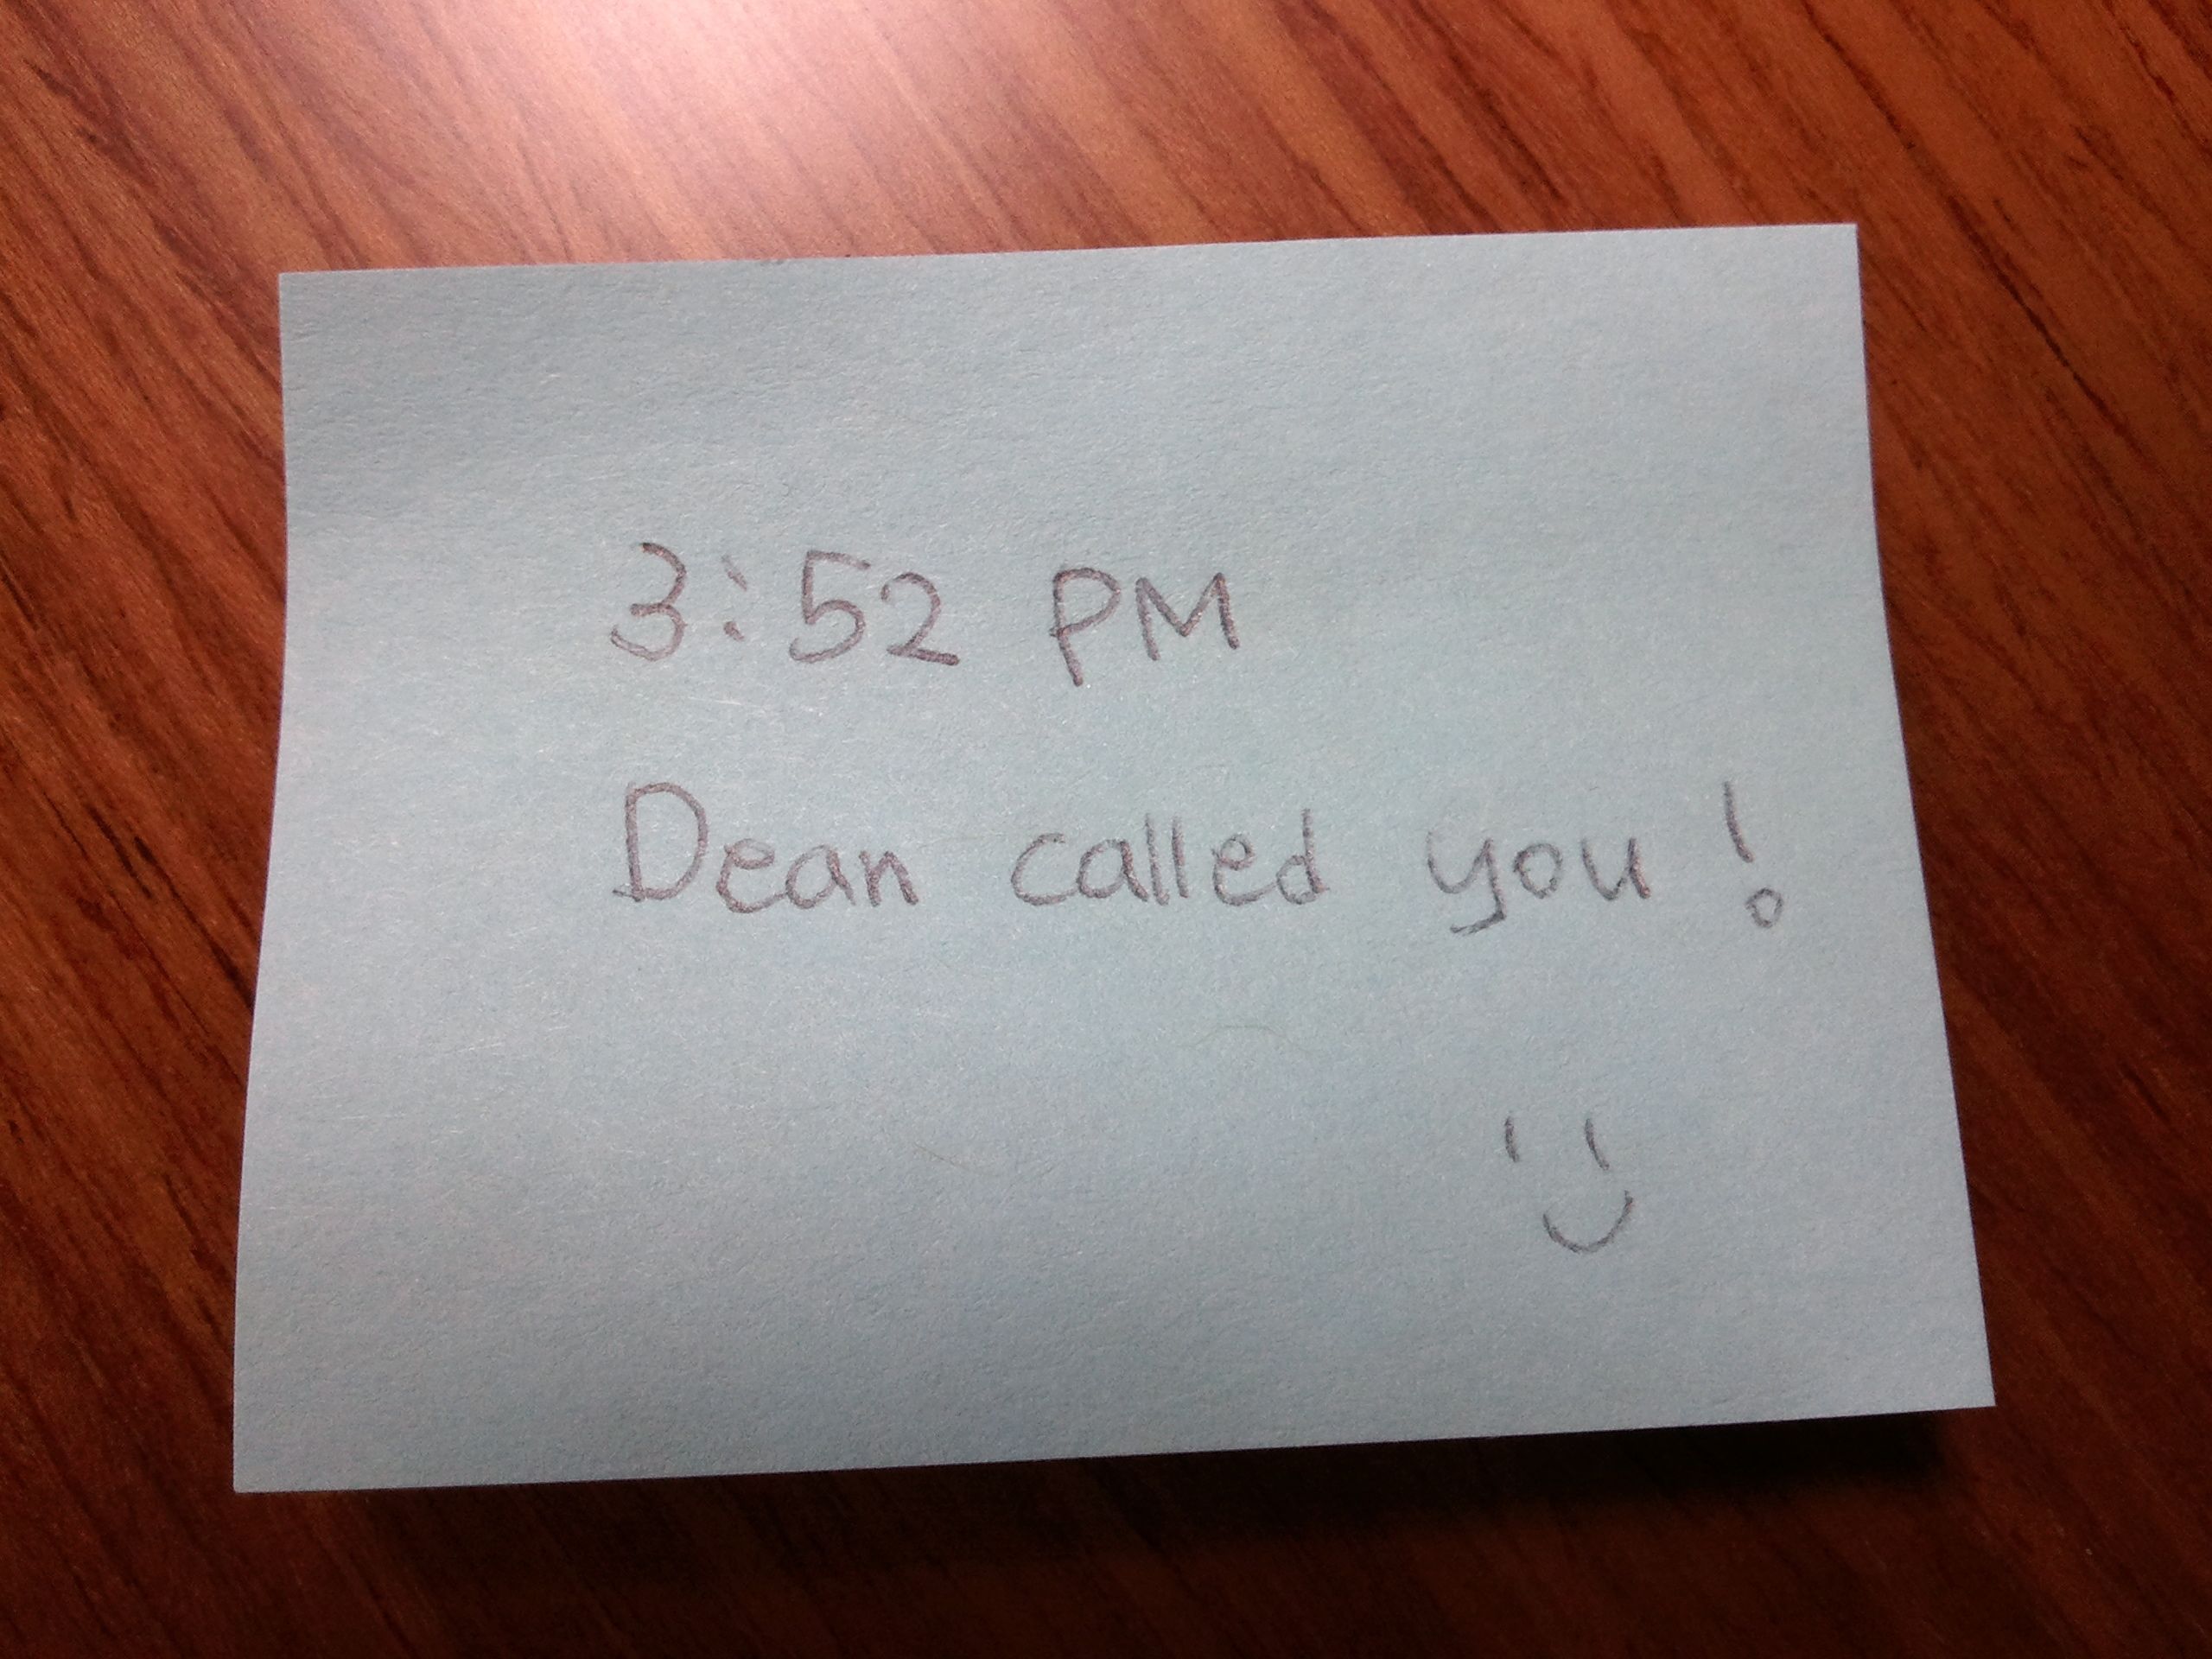 3:52 PM
Dean called you!